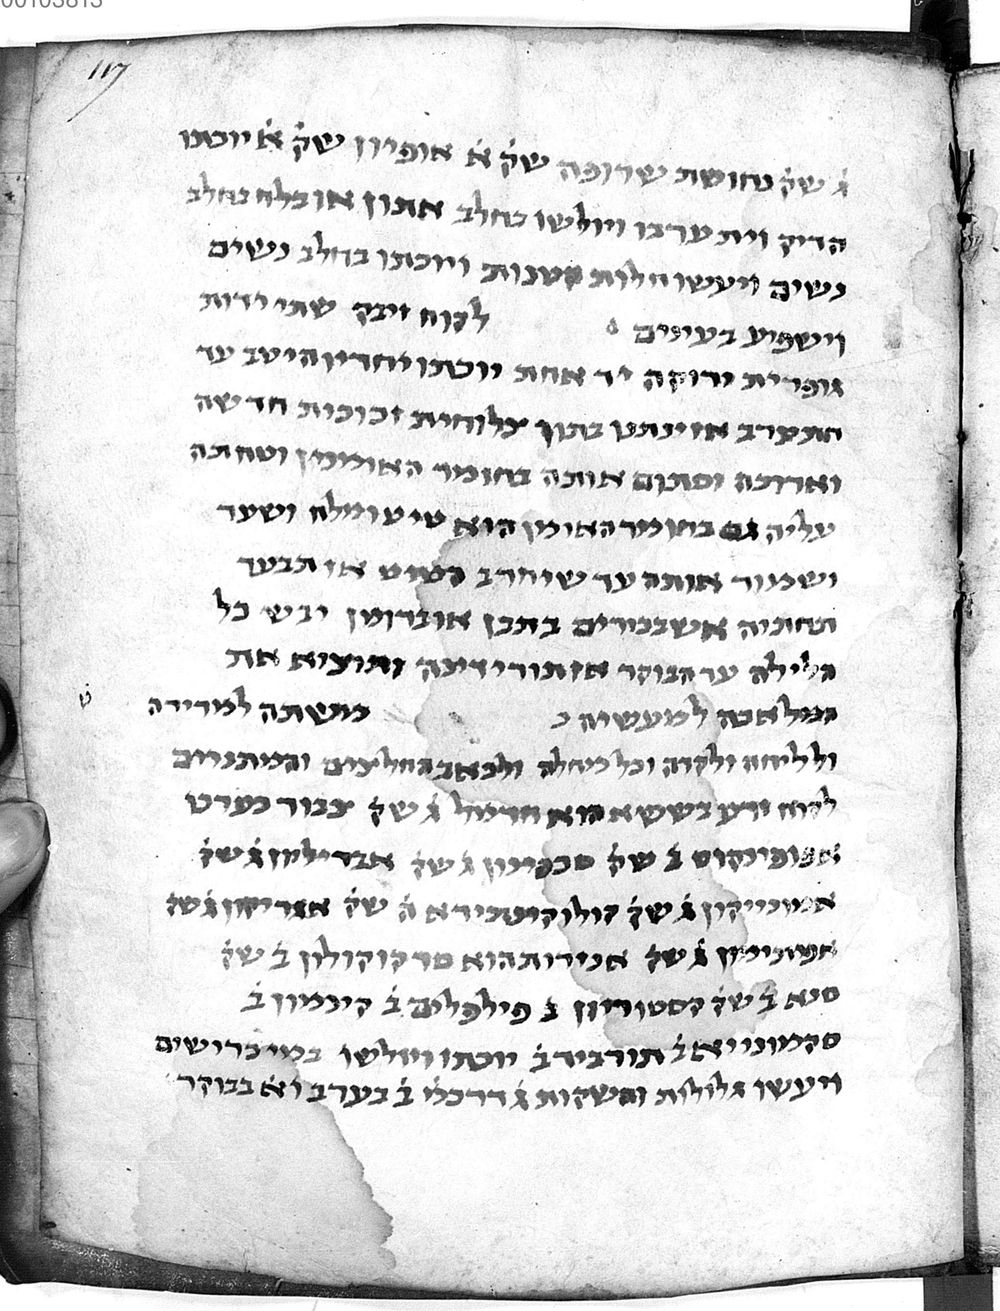 00103813
117
ג̇ שק̇ נחושת שרופה שק̇ א̇ אופיון שק̇ א̇ יוכתו
הדיק ויתערבו ויולשו בחלב אתון או בלח בחלב
נשים ויעשו חלות קטנות ויוכתו בחלב נשים
וישפיע בעינים לקוח זיבק שתי ידות
גופרית ירוקה יד אחת יוכתו יחדיו היטב עד
תתערב אז ינתנו בתוך צלוחית זכוכית חדשה
וארוכה וסתום אותה בחומר האומנין וטח תה
עליה גם בחומר האומן הוא טיט ומלח ושער
ושמור אותה עד שיחרב הטיט אז תבער
תחתיה אש בכירים בתבן או בדומן יבש כל
הלילה עד הבוקר אז תורידינה ותוציא את
המלאכה למעשיה כ משתה למרירה
ולליחה ולקרה וכל מחלה ולכאב החליצים והמתנים
לקוח זרע בששא הוא חרמל ג̇ שק̇ צבור כערט
אפופינקוס ב̇ שק̇ סכפינון ג̇ שק̇ אברילון ג̇ שק̇
אמונייקון ג̇ שק̇ קולוקינטידא ה̇ שק̇ אגריקון ג̇ שק̇
ג̇ שק̇ אנירות הוא סרקוקולון ב̇ שק̇
סנא ב̇ שק̇ קסטוריון ב̇ פילפלים ב̇ קינמון ב̇
סקמונייא ב̇ תורביד ב̇ יוכתו ויולשו במי כרישים
ויעשו גלולות והשקות ג̇ דרכלי ב̇ בערב וא̇ בבוקר